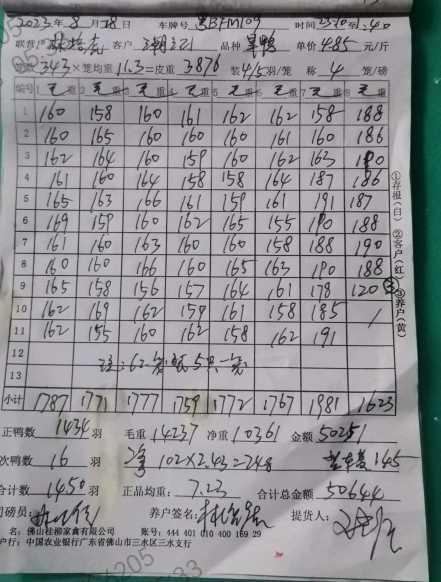 2023年8月18日 车牌号 粤BFM109 时间 23:10至1:40
联营: 客户 品种 单价 4.85 元/斤
笼数 343×笼均重 11.3=皮重 3876 装4/5羽/笼 称 4 笼/磅
编号 1 毛 重 2 毛 重 3 毛 重 4 毛 重 5 毛 重 6 毛 重 7 毛 重 8 毛 重
1 160 158 160 161 162 162 158 188
2 160 165 160 160 160 161 160 186
3 162 164 160 159 160 162 163 190
4 161 160 164 158 158 164 187 186
5 165 163 166 161 159 161 191 187
6 169 159 160 162 165 155 190 188
7 161 160 163 160 160 158 188 190
8 160 160 166 160 165 163 190 188
9 165 158 156 157 164 161 178 120
10 162 169 162 159 161 158 185 /
11 162 155 160 162 158 162 191
12 注:62笼 5只一笼
13
小计 1787 1771 1777 1759 1772 1767 1981 1623
正鸭数 1434 羽 毛重 14237 净重 10361 金额 50251
次鸭数 16 羽 102×2.43=248 145
合计数 1450 羽 正品均重: 7.23 合计总金额 50644
司磅员: 养户签名: 提货人:
名: 佛山桂柳家禽有限公司 账号: 444 401 010 400 169 29
户行: 中国农业银行广东省佛山市三水区三水支行
①存根(白) ②客户(红) ③养户(黄)